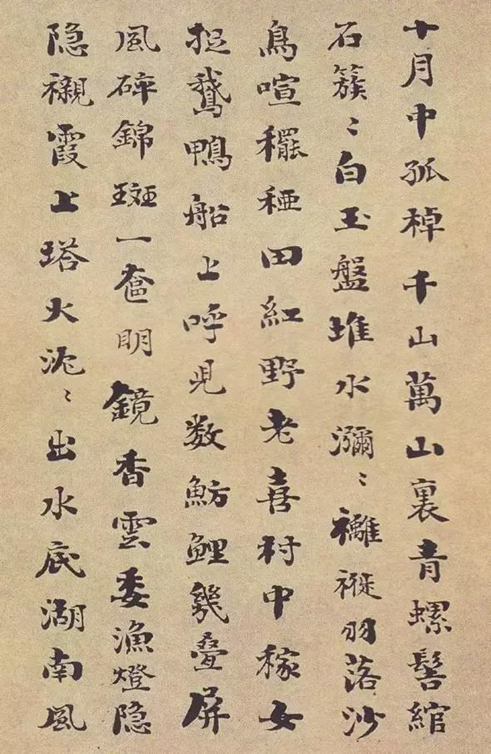 十月中孤棹千山萬山裏青螺髻綰
石簇〻白玉盤堆水瀰〻褷褷羽落沙
鳥喧䆉稏田紅野老喜村中稼女
捉鵝鴨船上呼児数魴鯉幾叠屏
風碎錦斑一奩明鏡香雲委漁燈隐
隐襯霞上塔火沱〻出水底湖南風